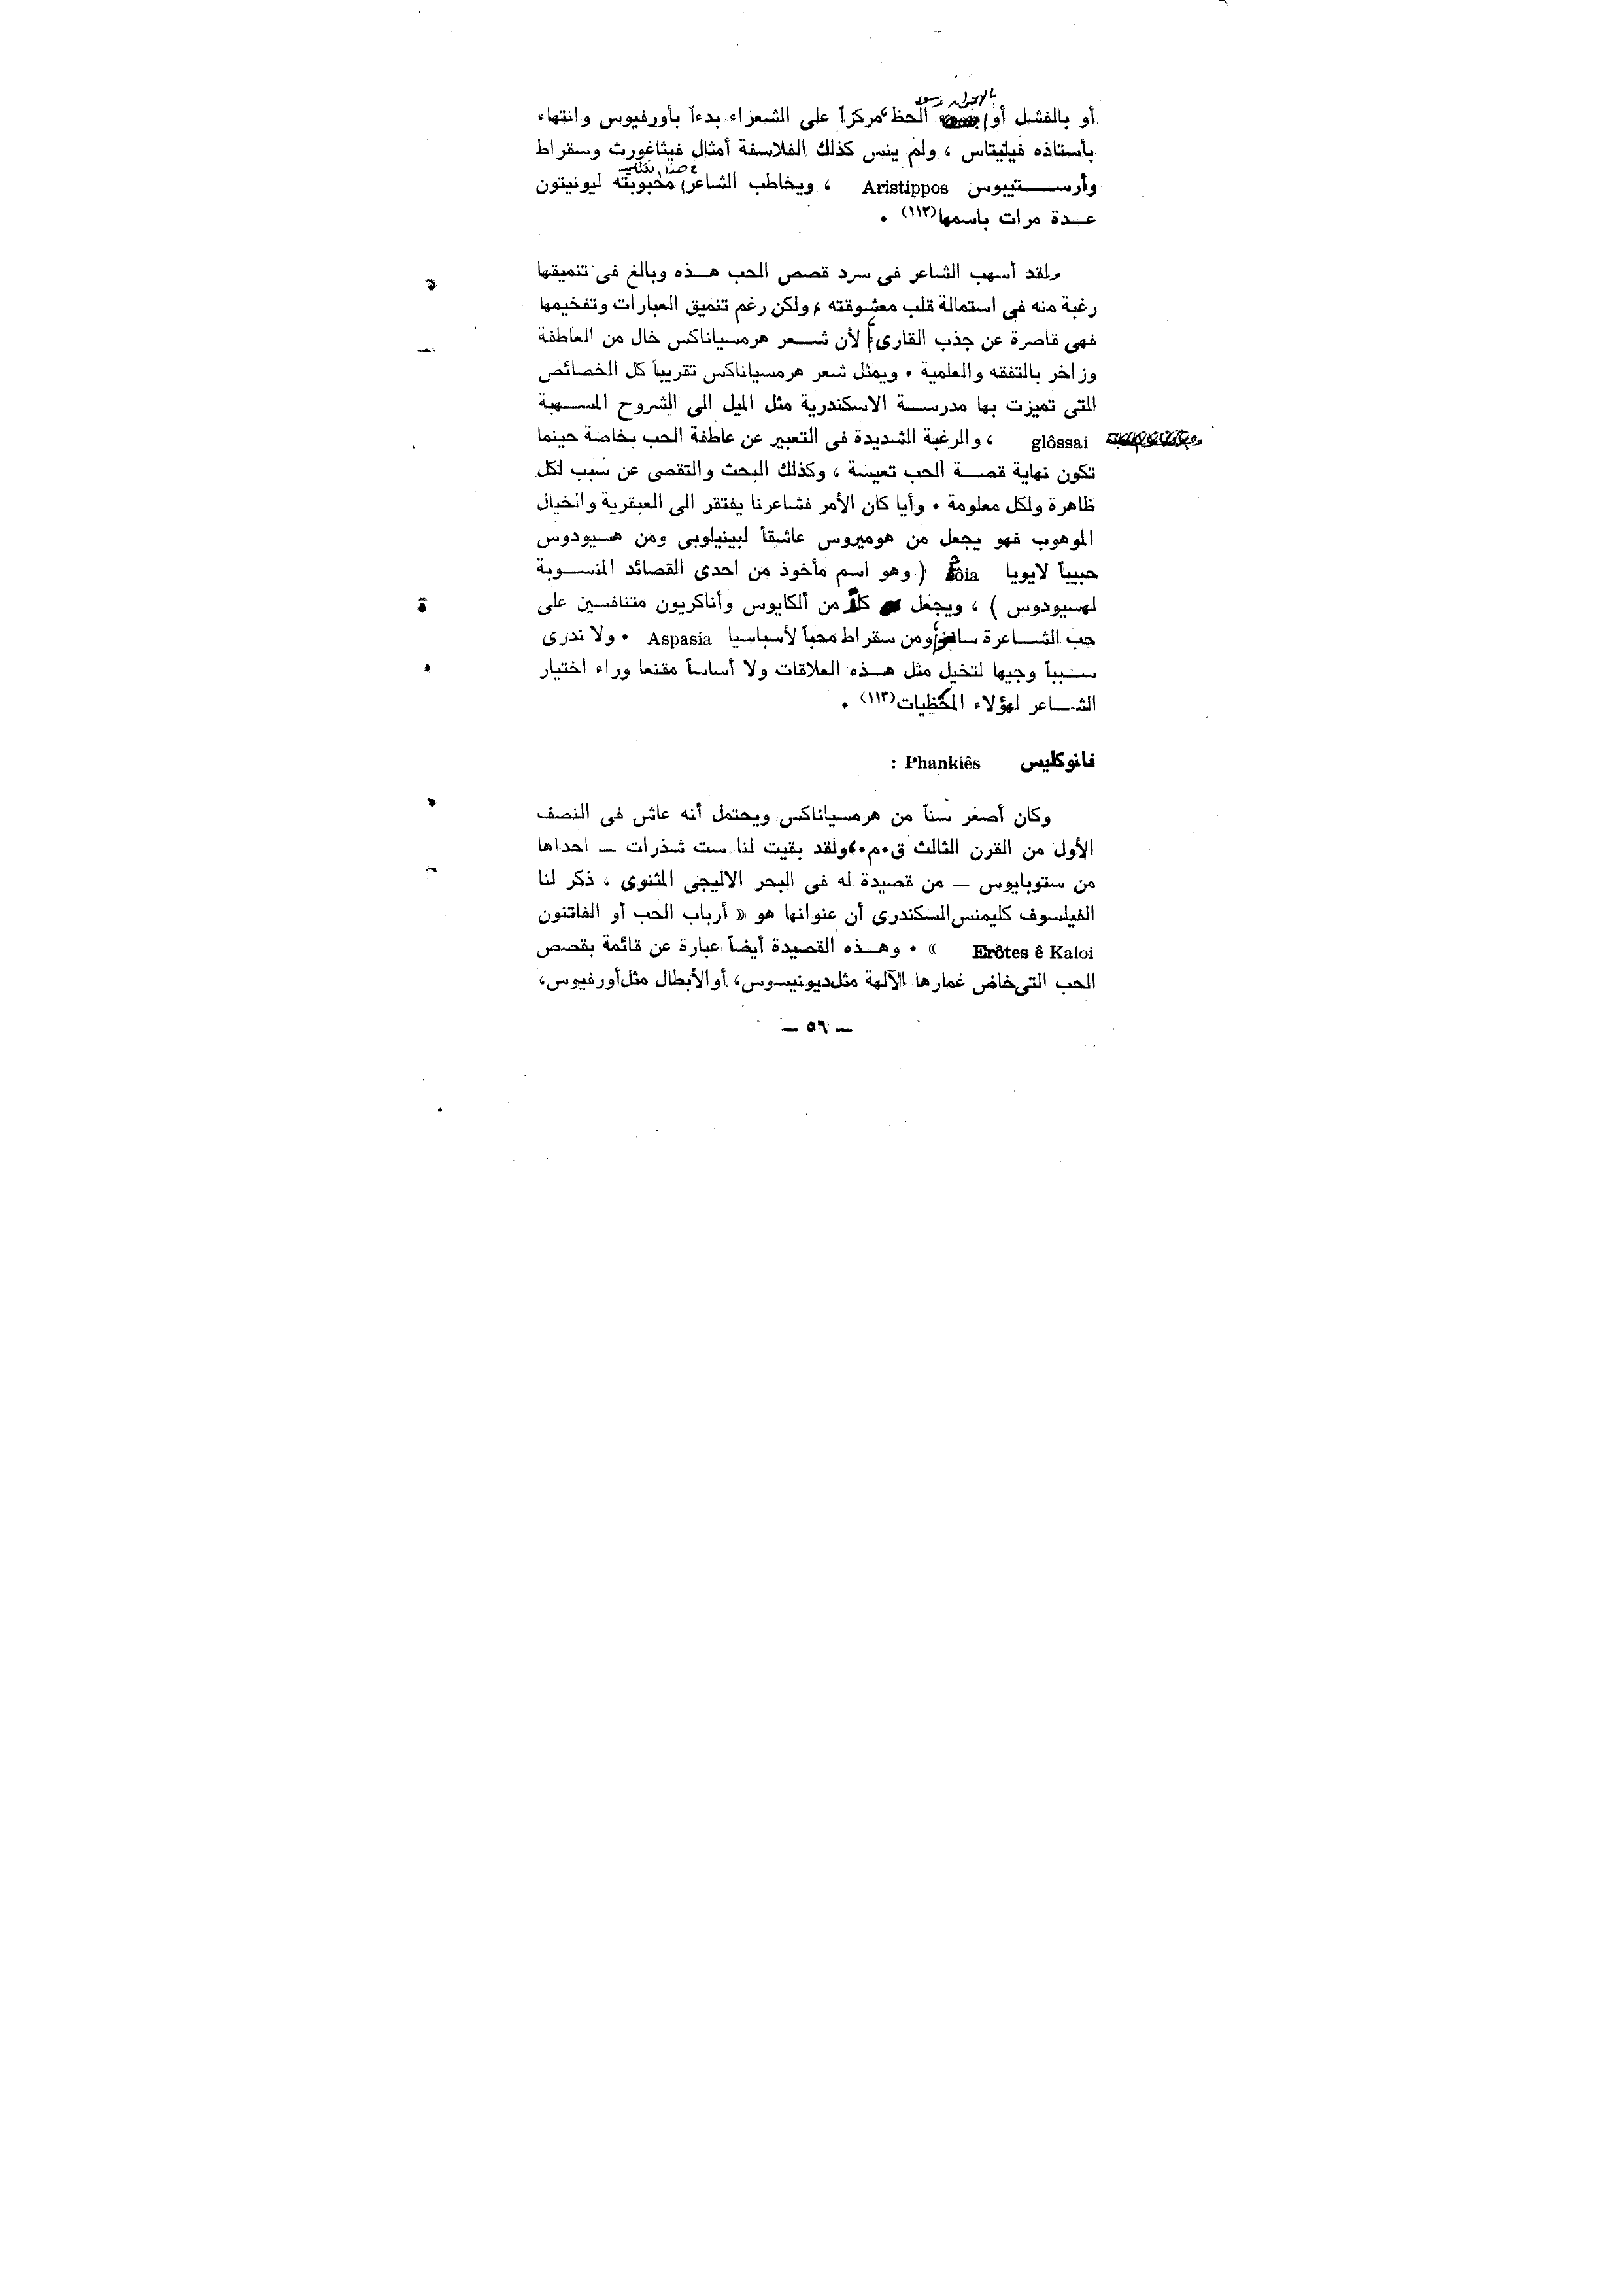 أو بالفشل أو الحظ، مركزاً على الشعراء بدءاً بأورفيوس وانتهاء
بأستاذه فيليتاس ، ولم ينس كذلك الفلاسفة أمثال فيثاغورث وسقراط
وأرســـتيبوس Aristippos ، ويخاطب الشاعر محبوبته ليونيتون
عــدة مرات باسمها(١١٢) ٠
ولقد أسهب الشاعر فى سرد قصص الحب هــذه وبالغ فى تنميقها
رغبة منه فى استمالة قلب معشوقته ، ولكن رغم تنميق العبارات وتفخيمها
فهى قاصرة عن جذب القارىء لأن شــعر هرمسياناكس خال من العاطفة
وزاخر بالتفقه والعلمية ٠ ويمثل شعر هرمسياناكس تقريباً كل الخصائص
التى تميزت بها مدرســة الاسكندرية مثل الميل الى الشروح المســهبة
glôssai ، والرغبة الشديدة فى التعبير عن عاطفة الحب بخاصة حينما
تكون نهاية قصــة الحب تعيسة ، وكذلك البحث والتقصى عن سبب لكل
ظاهرة ولكل معلومة ٠ وأيا كان الأمر فشاعرنا يفتقر الى العبقرية والخيال
الموهوب فهو يجعل من هوميروس عاشقاً لبينيلوبى ومن هسيودوس
حبيباً لايويا Êôia ( وهو اسم مأخوذ من احدى القصائد المنســوبة
لهسيودوس ) ، ويجعل كلاً من ألكايوس وأناكريون متنافسين على
حب الشــاعرة سافو، ومن سقراط محباً لأسباسيا Aspasia ٠ ولا ندرى
ســبباً وجيها لتخيل مثل هــذه العلاقات ولا أساساً مقنعا وراء اختيار
الشــاعر لهؤلاء المحظيات(١١٣) ٠
فانوكليس Phanklês :
وكان أصغر سناً من هرمسياناكس ويحتمل أنه عاش فى النصف
الأول من القرن الثالث ق٠م٠، ولقد بقيت لنا ست شذرات — احداها
من ستوبايوس — من قصيدة له فى البحر الاليجى المثنوى ، ذكر لنا
الفيلسوف كليمنس السكندرى أن عنوانها هو « أرباب الحب أو الفاتنون
Erôtes ê Kaloi » ٠ وهــذه القصيدة أيضاً عبارة عن قائمة بقصص
الحب التى خاض غمارها الآلهة مثل ديونيسوس، أو الأبطال مثل أورفيوس،
— ٥٦ —